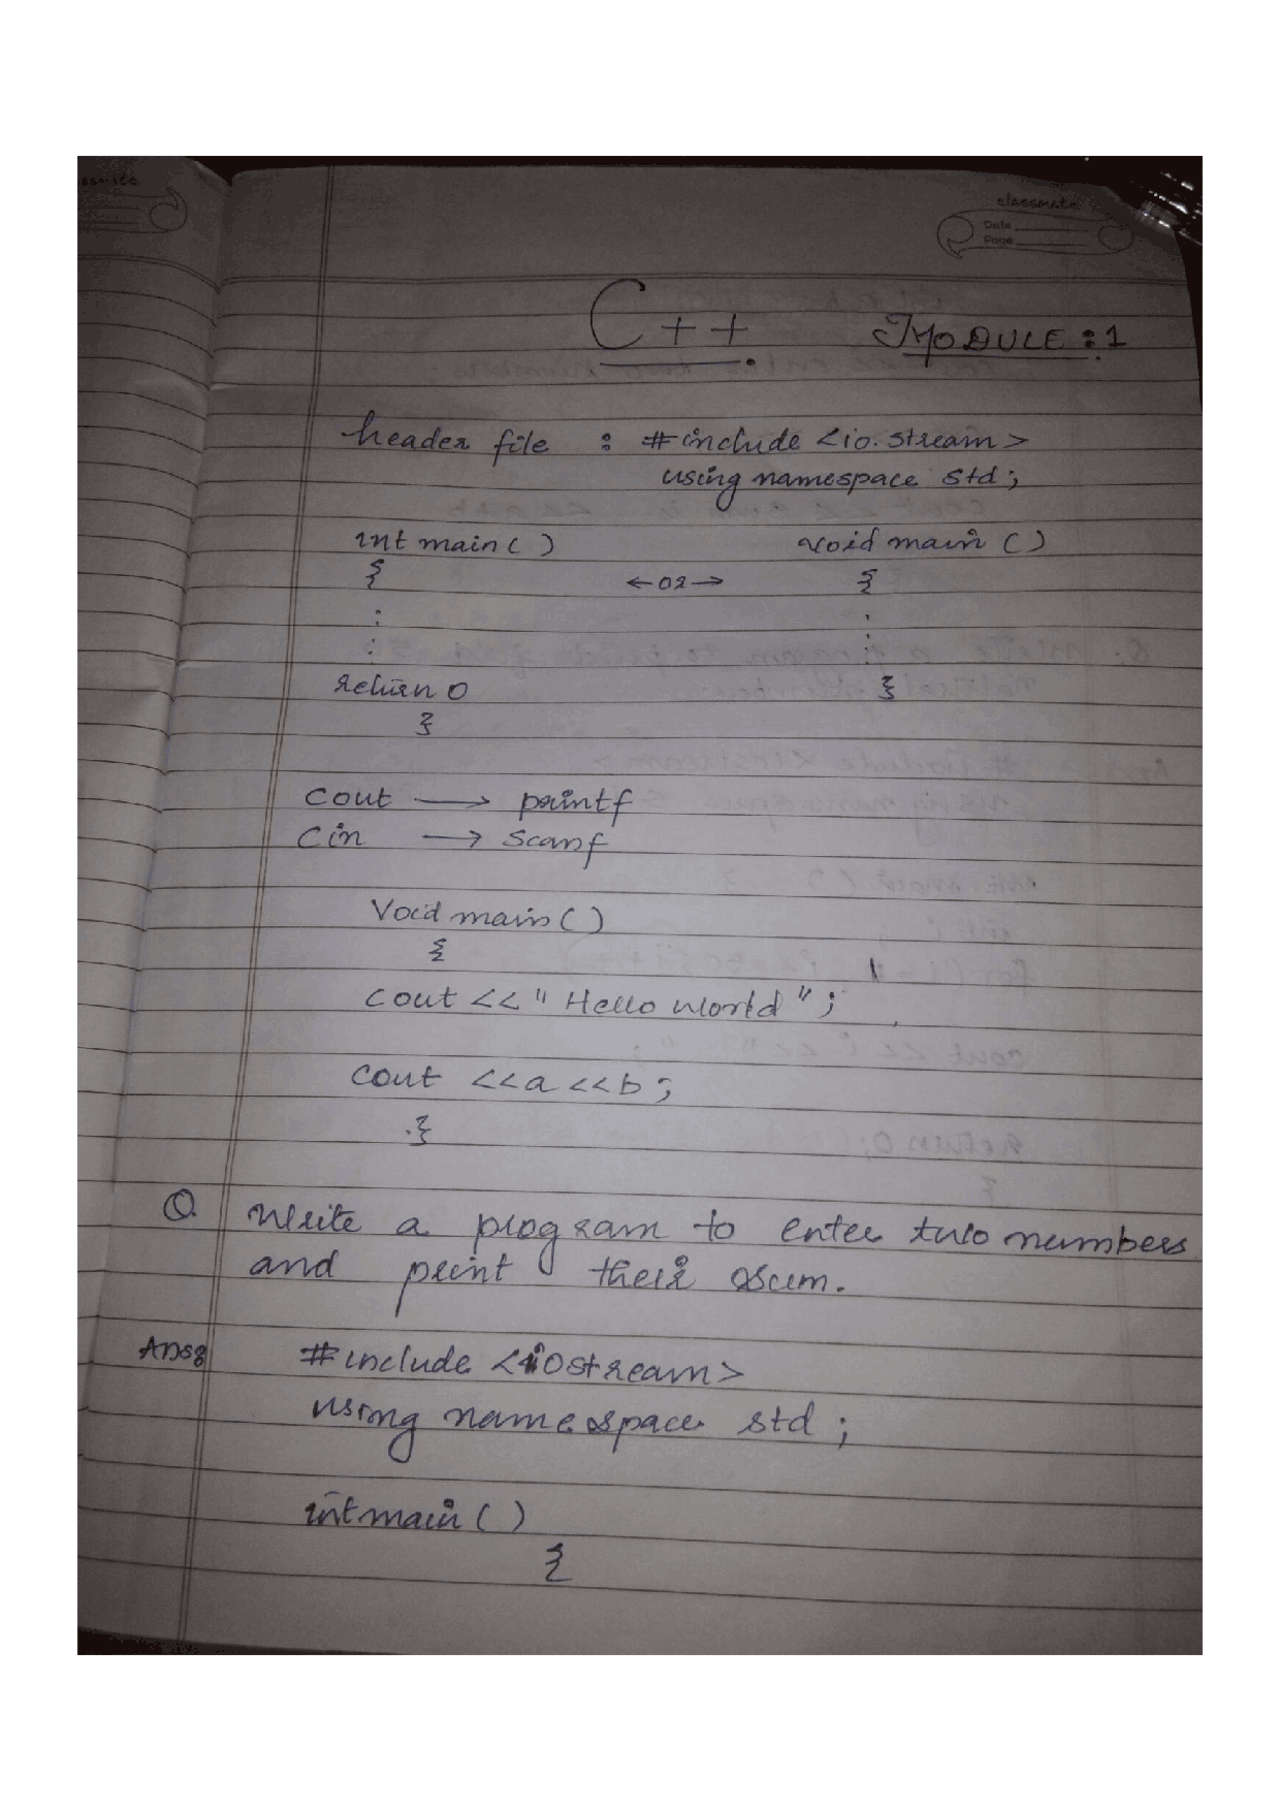 classmate
Date
Page
C++ MODULE : 1
header file : #include <io.stream>
using namespace std;
int main ( ) void main ( )
{ ← or → {
:
:
return 0 }
}
Cout → printf
Cin → Scanf
Void main ( )
{
Cout << " Hello world " ;
Cout << a << b ;
}
Q. Write a program to enter two numbers
and print their sum.
Ans: #include <iostream>
using namespace std ;
int main ( )
{